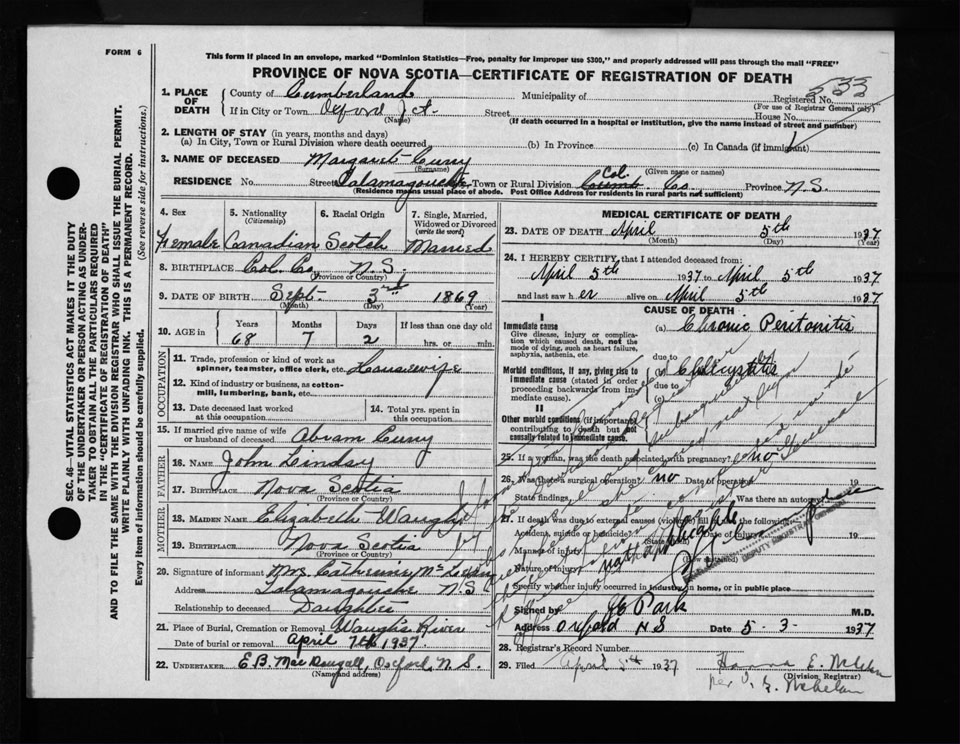 FORM 6
This form if placed in an envelope, marked "Dominion Statistics—Free, penalty for improper use $300," and properly addressed will pass through the mail "FREE"
PROVINCE OF NOVA SCOTIA—CERTIFICATE OF REGISTRATION OF DEATH
SEC. 46—VITAL STATISTICS ACT MAKES IT THE DUTY
OF THE UNDERTAKER OR PERSON ACTING AS UNDER-
TAKER TO OBTAIN ALL THE PARTICULARS REQUIRED
IN THE "CERTIFICATE OF REGISTRATION OF DEATH"
AND TO FILE THE SAME WITH THE DIVISION REGISTRAR WHO SHALL ISSUE THE BURIAL PERMIT.
WRITE PLAINLY WITH UNFADING INK. THIS IS A PERMANENT RECORD.
Every item of information should be carefully supplied. (See reverse side for instructions.)
1. PLACE OF DEATH County of Cumberland Municipality of Registered No. 533
(For use of Registrar General only)
If in City or Town Oxford Jct. Street House No.
(Name) (If death occurred in a hospital or institution, give the name instead of street and number)
2. LENGTH OF STAY (in years, months and days)
(a) In City, Town or Rural Division where death occurred (b) In Province (c) In Canada (if immigrant)
3. NAME OF DECEASED Margaret Curry
(Surname) (Given name or names)
RESIDENCE No. Street Tatamagouche Town or Rural Division Col. Cumb. Co. Province N.S.
(Residence means usual place of abode. Post Office Address for residents in rural parts not sufficient)
4. Sex 5. Nationality 6. Racial Origin 7. Single, Married, Widowed or Divorced
(Citizenship) (write the word)
Female Canadian Scotch Married
8. BIRTHPLACE Col. Co. N.S.
(Province or Country)
9. DATE OF BIRTH Sept. 3rd 1869
(Month) (Day) (Year)
10. AGE in Years Months Days If less than one day old
68 7 2 hrs. or min.
OCCUPATION
11. Trade, profession or kind of work as spinner, teamster, office clerk, etc. Housewife
12. Kind of industry or business, as cotton-mill, lumbering, bank, etc.
13. Date deceased last worked at this occupation 14. Total yrs. spent in this occupation
15. If married give name of wife or husband of deceased Abram Curry
FATHER
16. NAME John Lindsy
17. BIRTHPLACE Nova Scotia
(Province or Country)
MOTHER
18. MAIDEN NAME Elizabeth Waugh
19. BIRTHPLACE Nova Scotia
(Province or Country)
20. Signature of informant Mrs. Catherine
Address Tatamagouche N.S.
Relationship to deceased Daughter
21. Place of Burial, Cremation or Removal Waugh's River
Date of burial or removal April 7th 1937.
22. UNDERTAKER E.B. MacDougall, Oxford, N.S.
(Name and address)
MEDICAL CERTIFICATE OF DEATH
23. DATE OF DEATH April 5th 1937
(Month) (Day) (Year)
24. I HEREBY CERTIFY that I attended deceased from:
April 5th 1937 to April 5th 1937
and last saw her alive on April 5th 1937
CAUSE OF DEATH
I
Immediate cause (a) Chronic Peritonitis
Give disease, injury or complication which caused death, not the mode of dying, such as heart failure, asphyxia, asthenia, etc.
due to
Morbid conditions, if any, giving rise to immediate cause (stated in order proceeding backwards from immediate cause).
due to
II
Other morbid conditions (if important) contributing to death but not causally related to immediate cause.
25. If a woman, was the death associated with pregnancy? no
26. Was there a surgical operation? no Date of operation
State findings Was there an autopsy?
27. If death was due to external causes (violence) fill in also the following:
Accident, suicide or homicide? Date of injury 19
Manner of injury
Nature of injury not applicable
Specify whether injury occurred in industry, in home, or in public place
DEPUTY REGISTRAR GENERAL
Signed by Park M.D.
Address Oxford N S Date 5-3- 1937
28. Registrar's Record Number
29. Filed April 5th 1937
(Division Registrar)